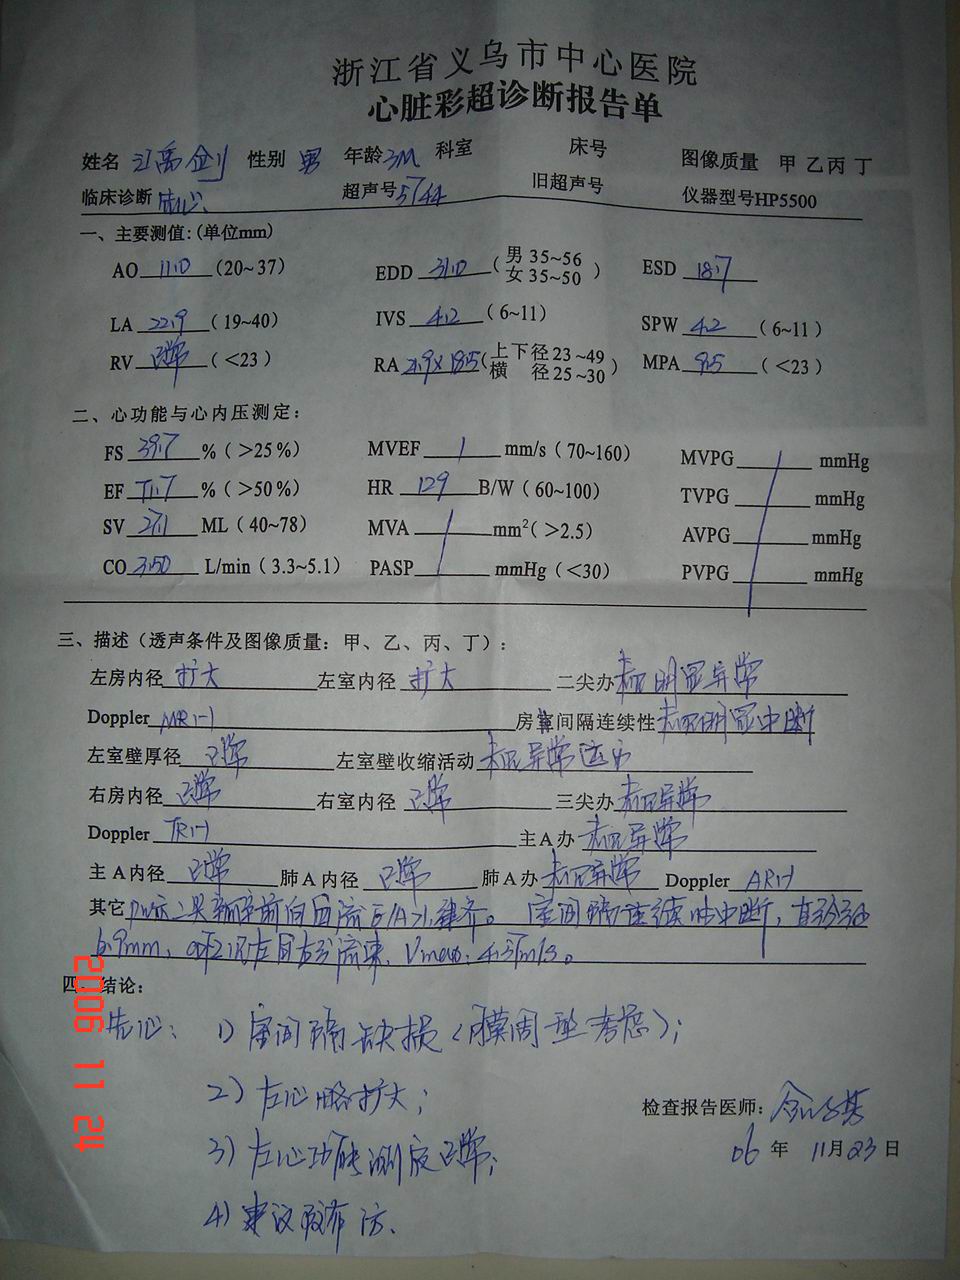 浙江省义乌市中心医院
心脏彩超诊断报告单
姓名 性别 男 年龄 3M 科室 床号 图像质量 甲 乙 丙 丁
临床诊断 先心、 超声号 5744 旧超声号 仪器型号HP5500
一、主要测值:(单位mm)
AO 11.0 (20~37) EDD 31.0 (男 35~56 女 35~50) ESD 18.7
LA 22.9 (19~40) IVS 4.2 (6~11) SPW 4.2 (6~11)
RV 正常 (<23) RA 21.9×18.5 (上下径 23~49 横 径 25~30) MPA 9.5 (<23)
二、心功能与心内压测定:
FS 39.7 %(>25%) MVEF / mm/s (70~160) MVPG mmHg
EF 71.7 %(>50%) HR 129 B/W (60~100) TVPG mmHg
SV 27.1 ML(40~78) MVA mm²(>2.5) AVPG mmHg
CO 3.50 L/min (3.3~5.1) PASP mmHg (<30) PVPG mmHg
三、描述(透声条件及图像质量:甲、乙、丙、丁):
左房内径 扩大 左室内径 扩大 二尖办 未见明显异常
Doppler MR(-) 房室间隔连续性 未见明显中断
左室壁厚径 正常 左室壁收缩活动 未见异常运动
右房内径 正常 右室内径 正常 三尖办 未见异常
Doppler TR(-) 主A办 未见异常
主A内径 正常 肺A内径 正常 肺A办 未见异常 Doppler AR(-)
其它 二尖瓣 前向血流E/A>1, 整齐。 室间隔连续性中断,直径约
6.9mm, 可见左向右分流束, Vmax: 4.57m/s。
四、结论:
先心: 1) 室间隔缺损(膜周型考虑);
2) 左心略扩大;
检查报告医师:
3) 左心功能测定正常;
06 年 11 月 23 日
4) 建议
2006 11 24